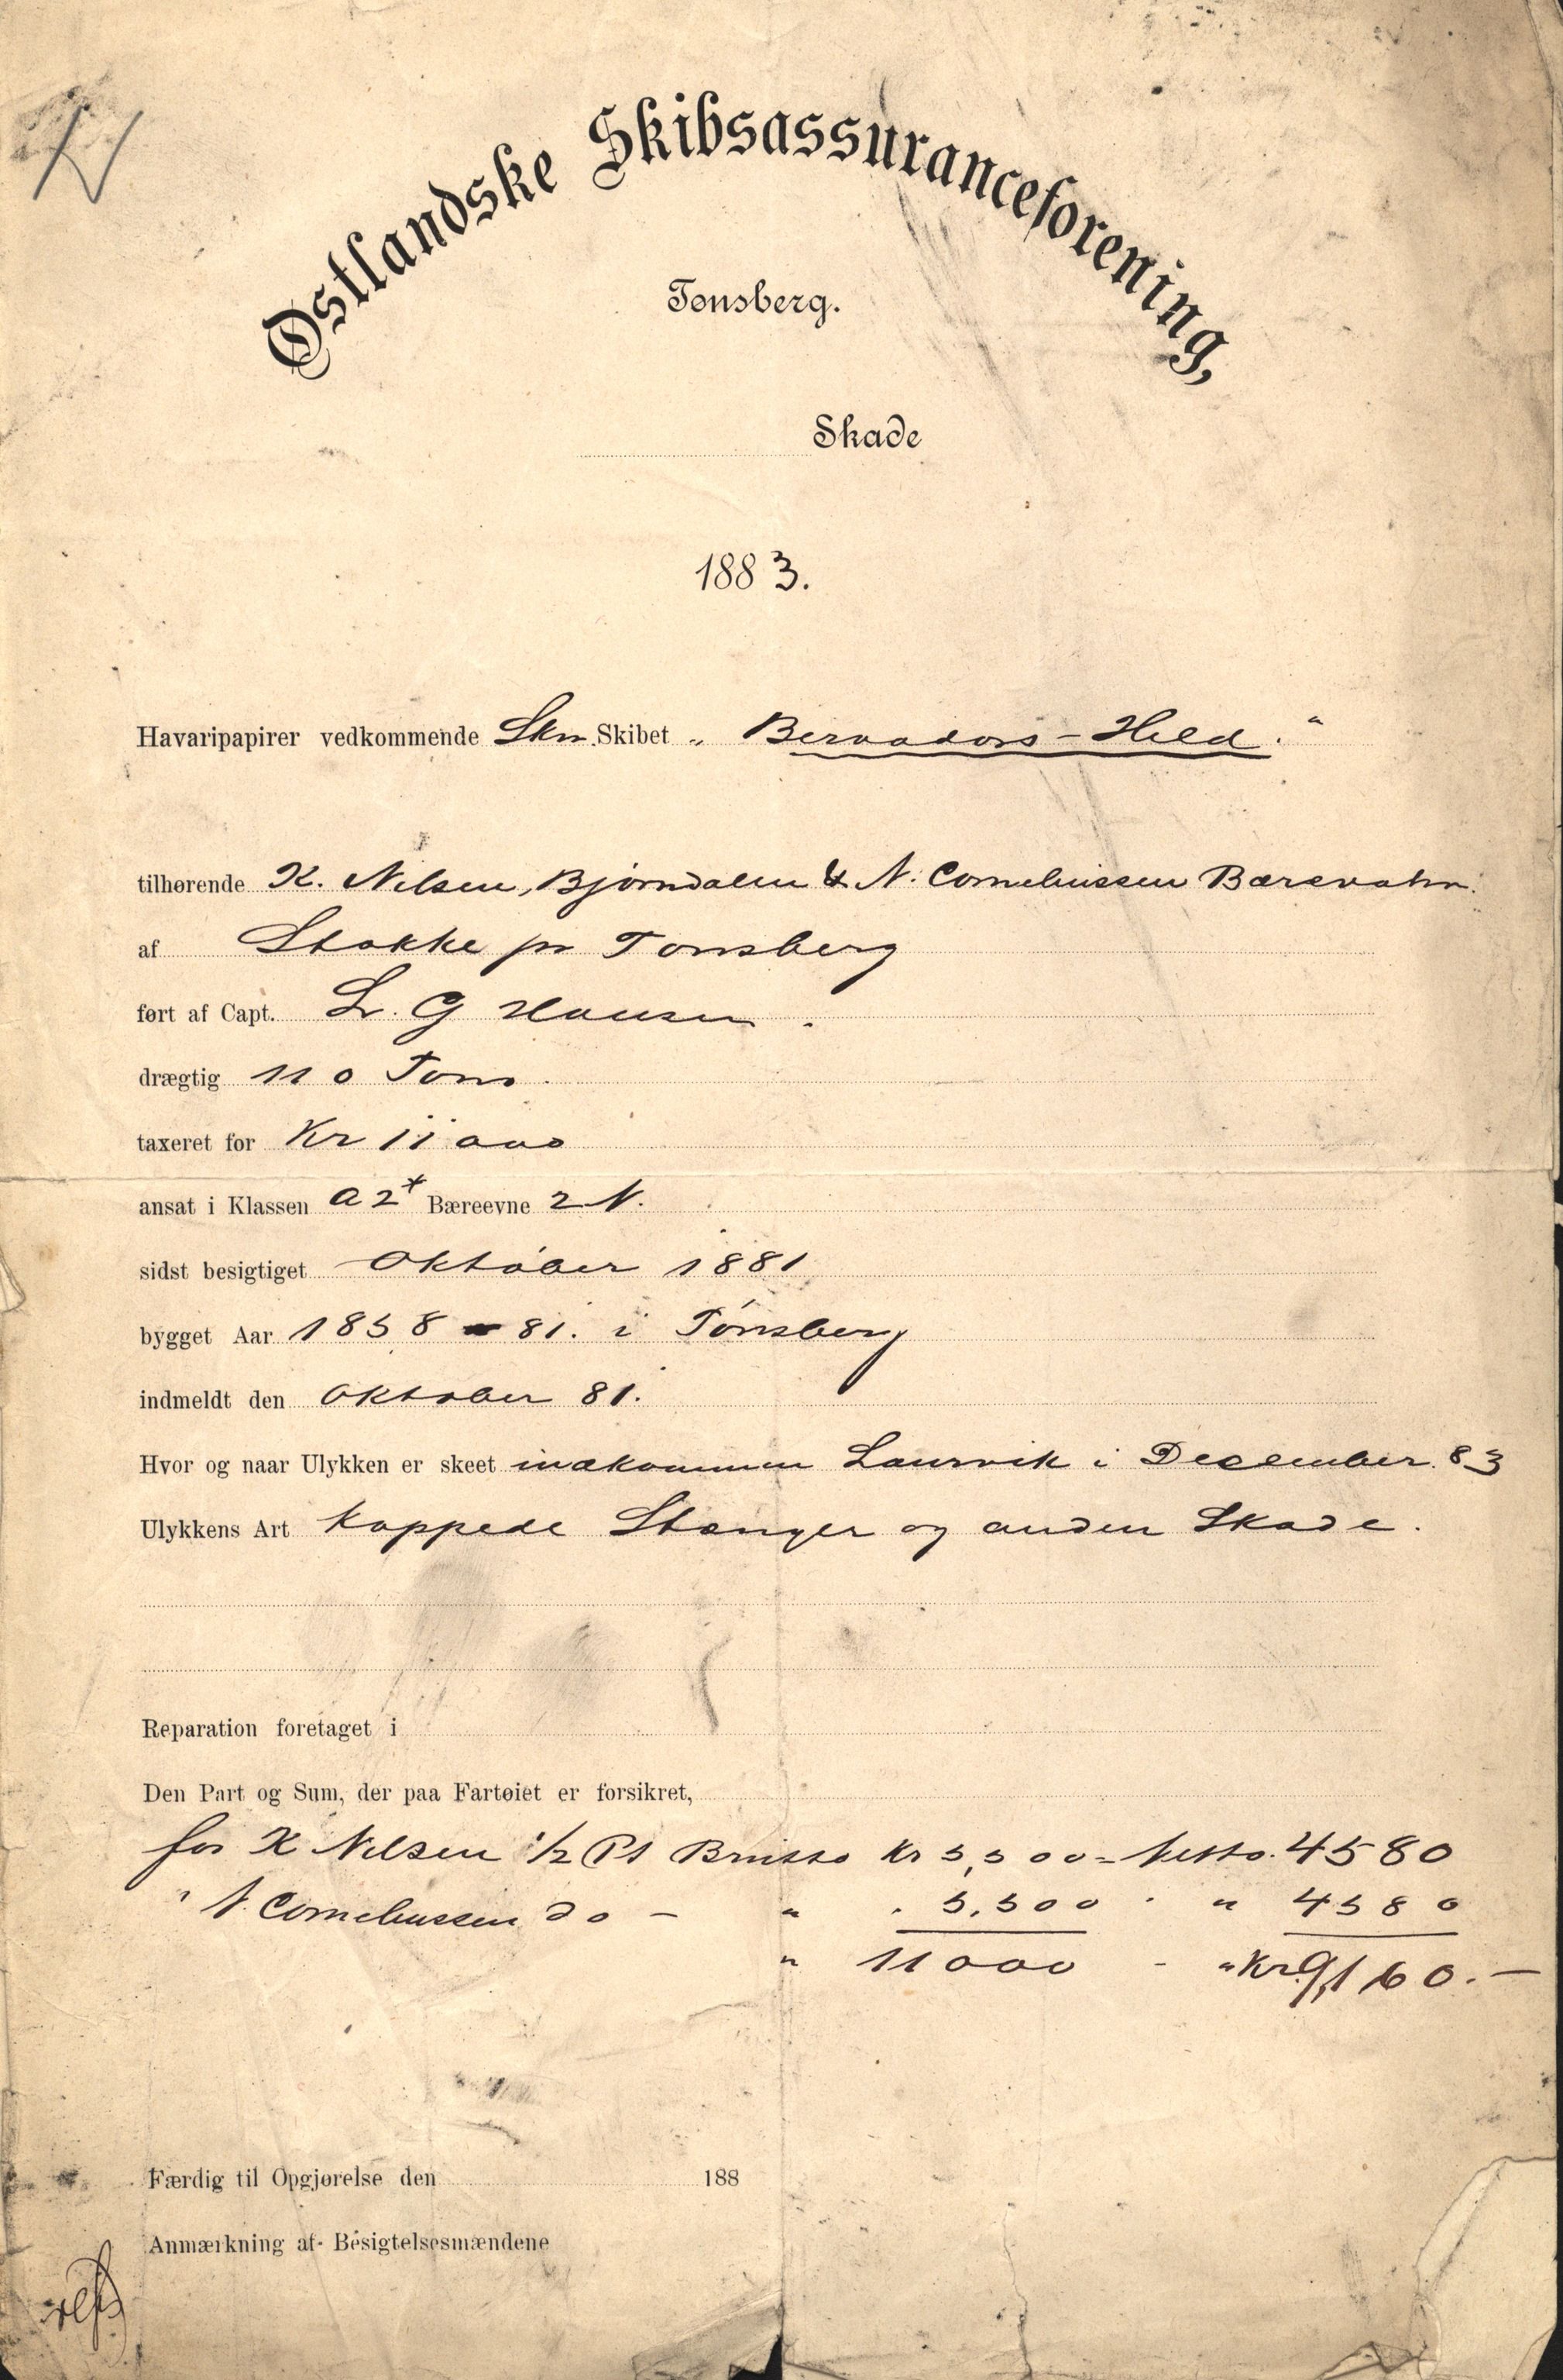 Østlandske Skibsassuranceforening,
Tønsberg.
Skade
1883.
Havaripapirer vedkommende Skn. Skibet „ Bervadors - Held. "
tilhørende K. Nilsen, Bjørndalen & N. Corneliussen Barevahn.
af Stokke pr Tønsberg
ført af Capt. L. G Hansen.
drægtig 110 Tons.
taxeret for Kr 11000
ansat i Klassen A2* Bæreevne 2 N.
sidst besigtiget Oktober 1881
bygget Aar 1858 - 81. i Tønsberg
indmeldt den Oktober 81.
Hvor og naar Ulykken er skeet indkommen Laurvik i December 83
Ulykkens Art kappede Stænger og anden Skade.
Reparation foretaget i
Den Part og Sum, der paa Fartøiet er forsikret,
for K Nilsen 1/2 Pt Brutto Kr 5,500 = Netto. 4580
" N. Corneliussen do - " . 5.500 . " 4580
" 11000 - " Kr. 9,160. —
Færdig til Opgjørelse den 188
Anmærkning af Besigtelsesmændene